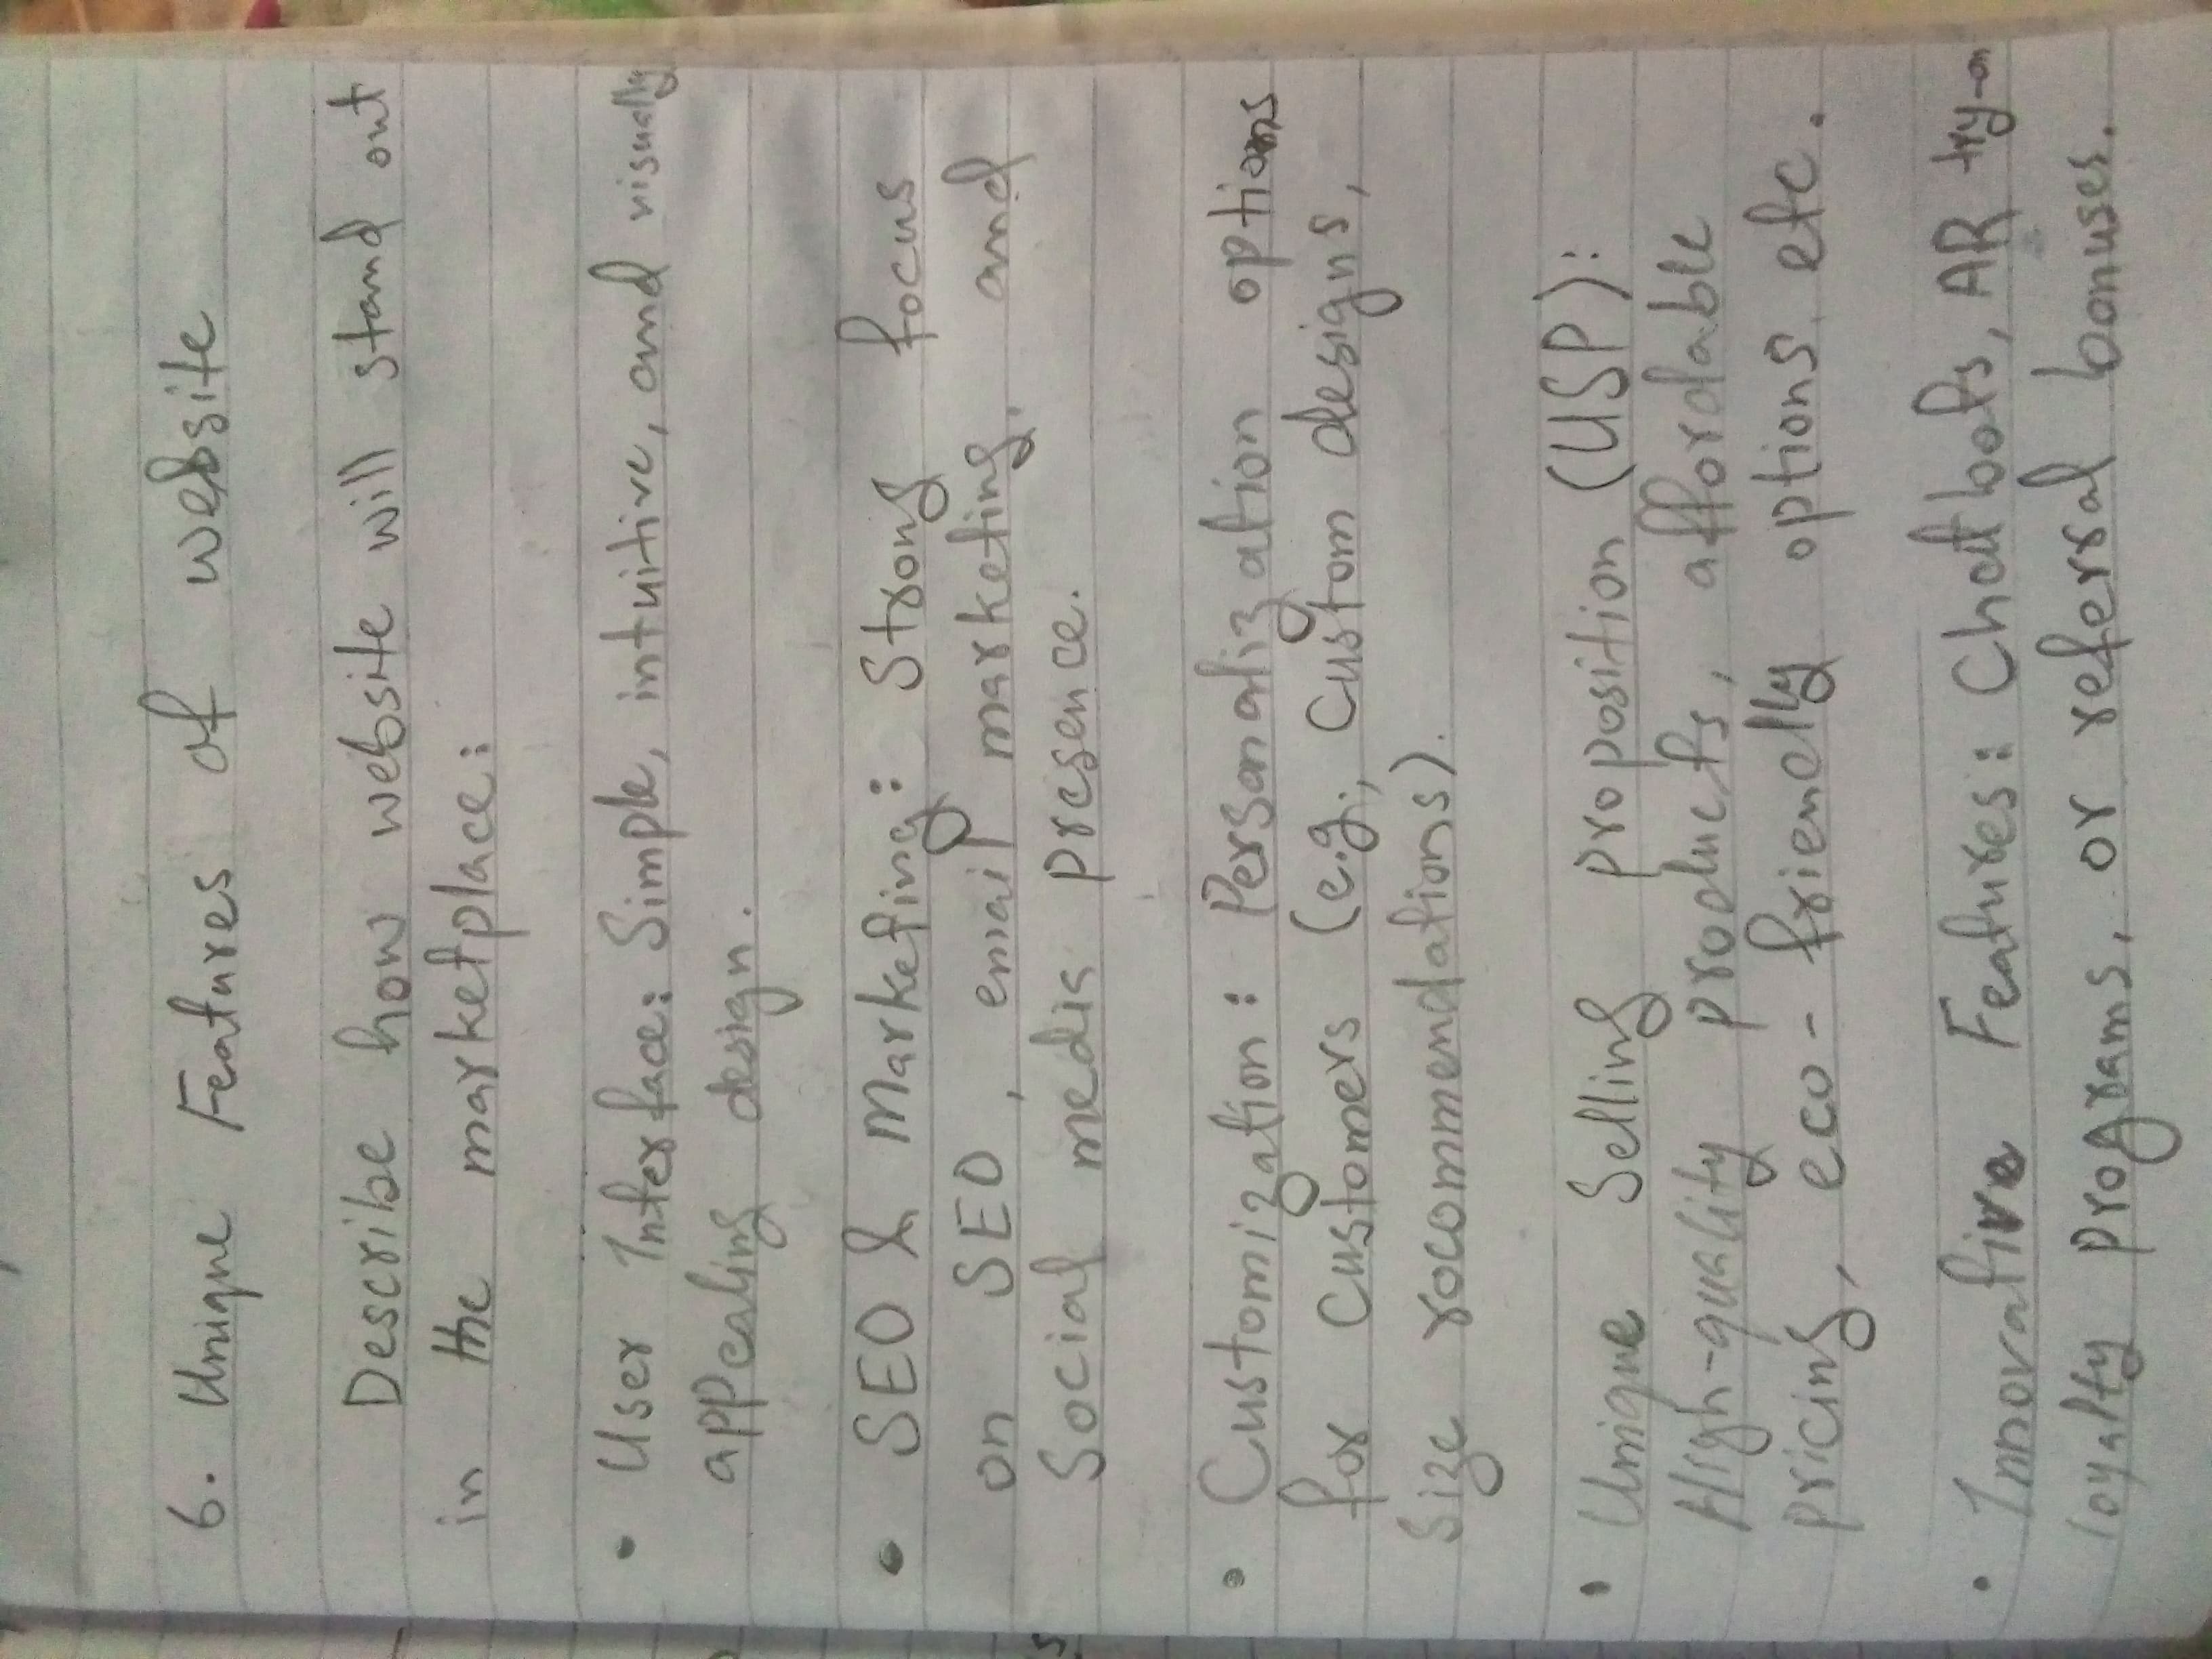 6. Unique Features of website
Describe how website will stand out
in the marketplace:
• User Interface: Simple, intuitive, and visually
appealing design.
• SEO & Marketing: Strong focus
on SEO, email marketing, and
Social medis presence.
• Customization: Personalization options
for customers (e.g., custom designs,
Size rocommendations).
• Unique Selling proposition (USP):
High-quality products, affordable
pricing, eco-friendly options etc.
• Innovative Features: Chatbots, AR try-on
loyalty programs, or referral bonuses.